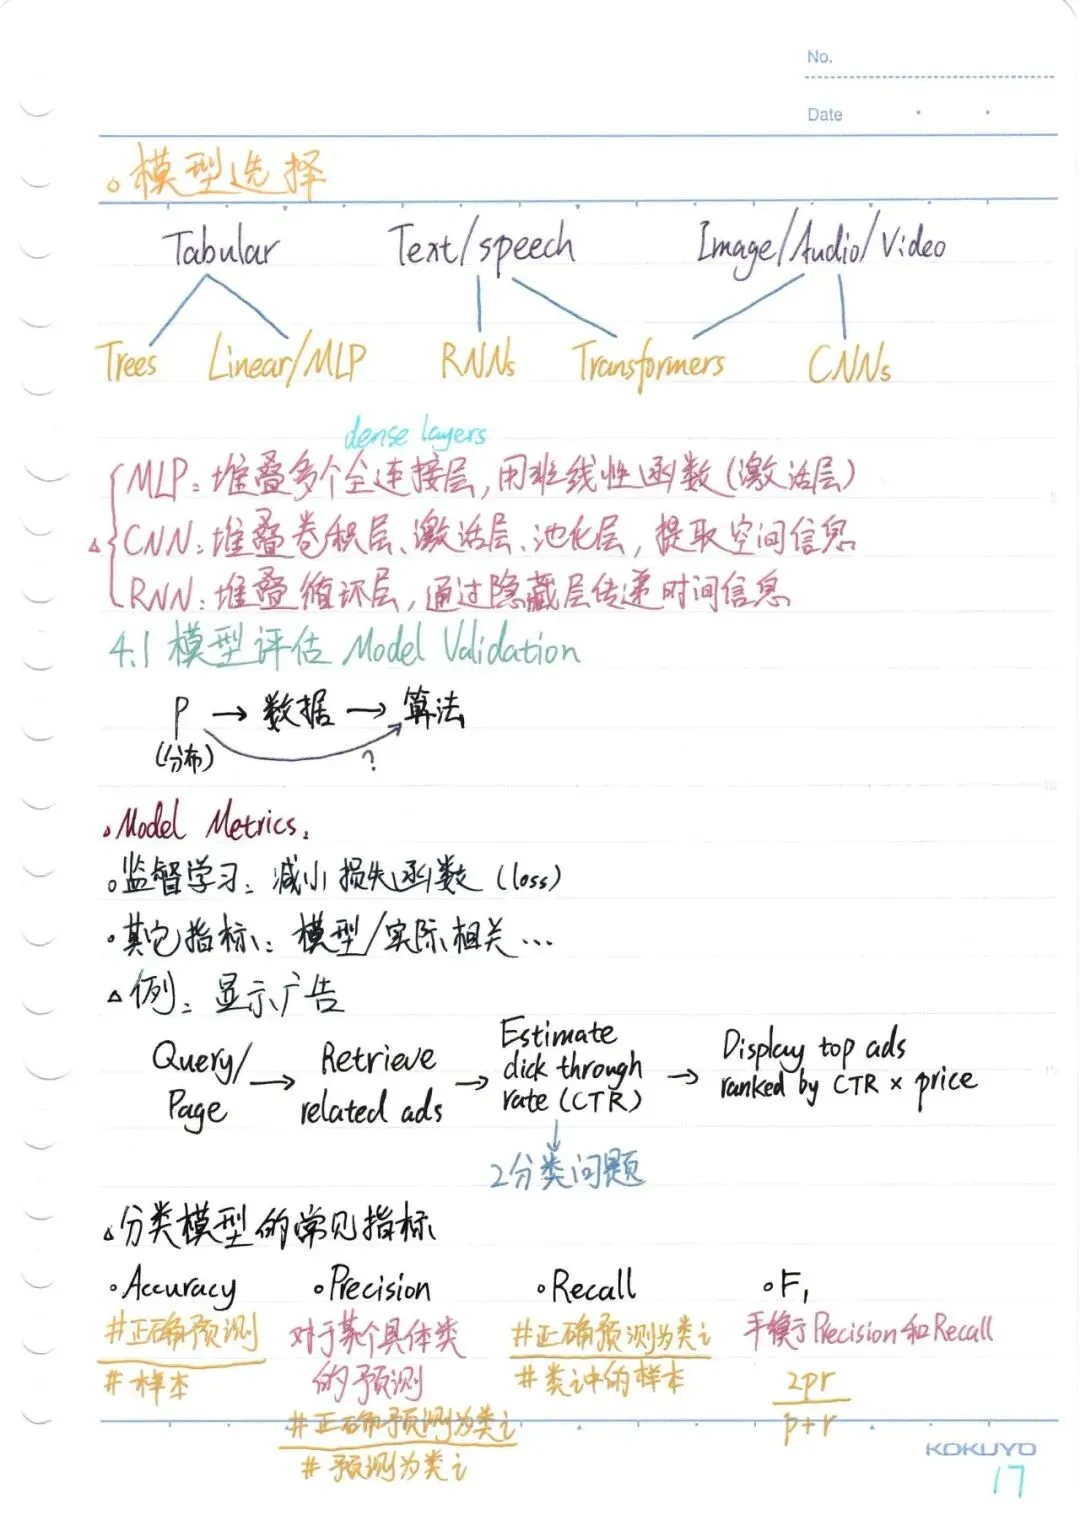 No.
Date
。模型选择
Tabular Text/speech Image/Audio/Video
Trees Linear/MLP RNNs Transformers CNNs
dense layers
MLP：堆叠多个全连接层，用非线性函数（激活层）
△ CNN：堆叠卷积层、激活层、池化层，提取空间信息
RNN：堆叠循环层，通过隐藏层传递时间信息
4.1 模型评估 Model Validation
P → 数据 → 算法
(分布) ?
Model Metrics.
。监督学习：减小损失函数（loss）
·其它指标：模型/实际相关…
△例：显示广告
Query/
Page
→ Retrieve
related ads
→ Estimate
click through
rate (CTR)
→ Display top ads
ranked by CTR × price
↓
2分类问题
△分类模型的常见指标
·Accuracy
#正确预测
#样本
·Precision
对于某个具体类
的预测
#正确预测为类i
#预测为类i
·Recall
#正确预测为类i
#类i中的样本
·F1
平衡于Precision和Recall
2pr
p+r
KOKUYO
17